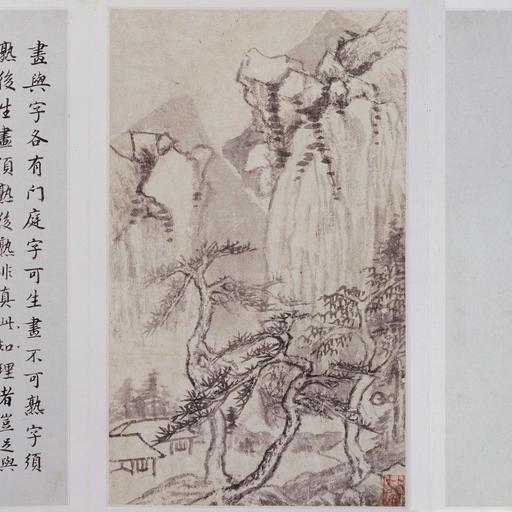 畫與字各有门庭字可生畫不可熟字須
熟後生畫須熟後熟非真此知理者豈足與